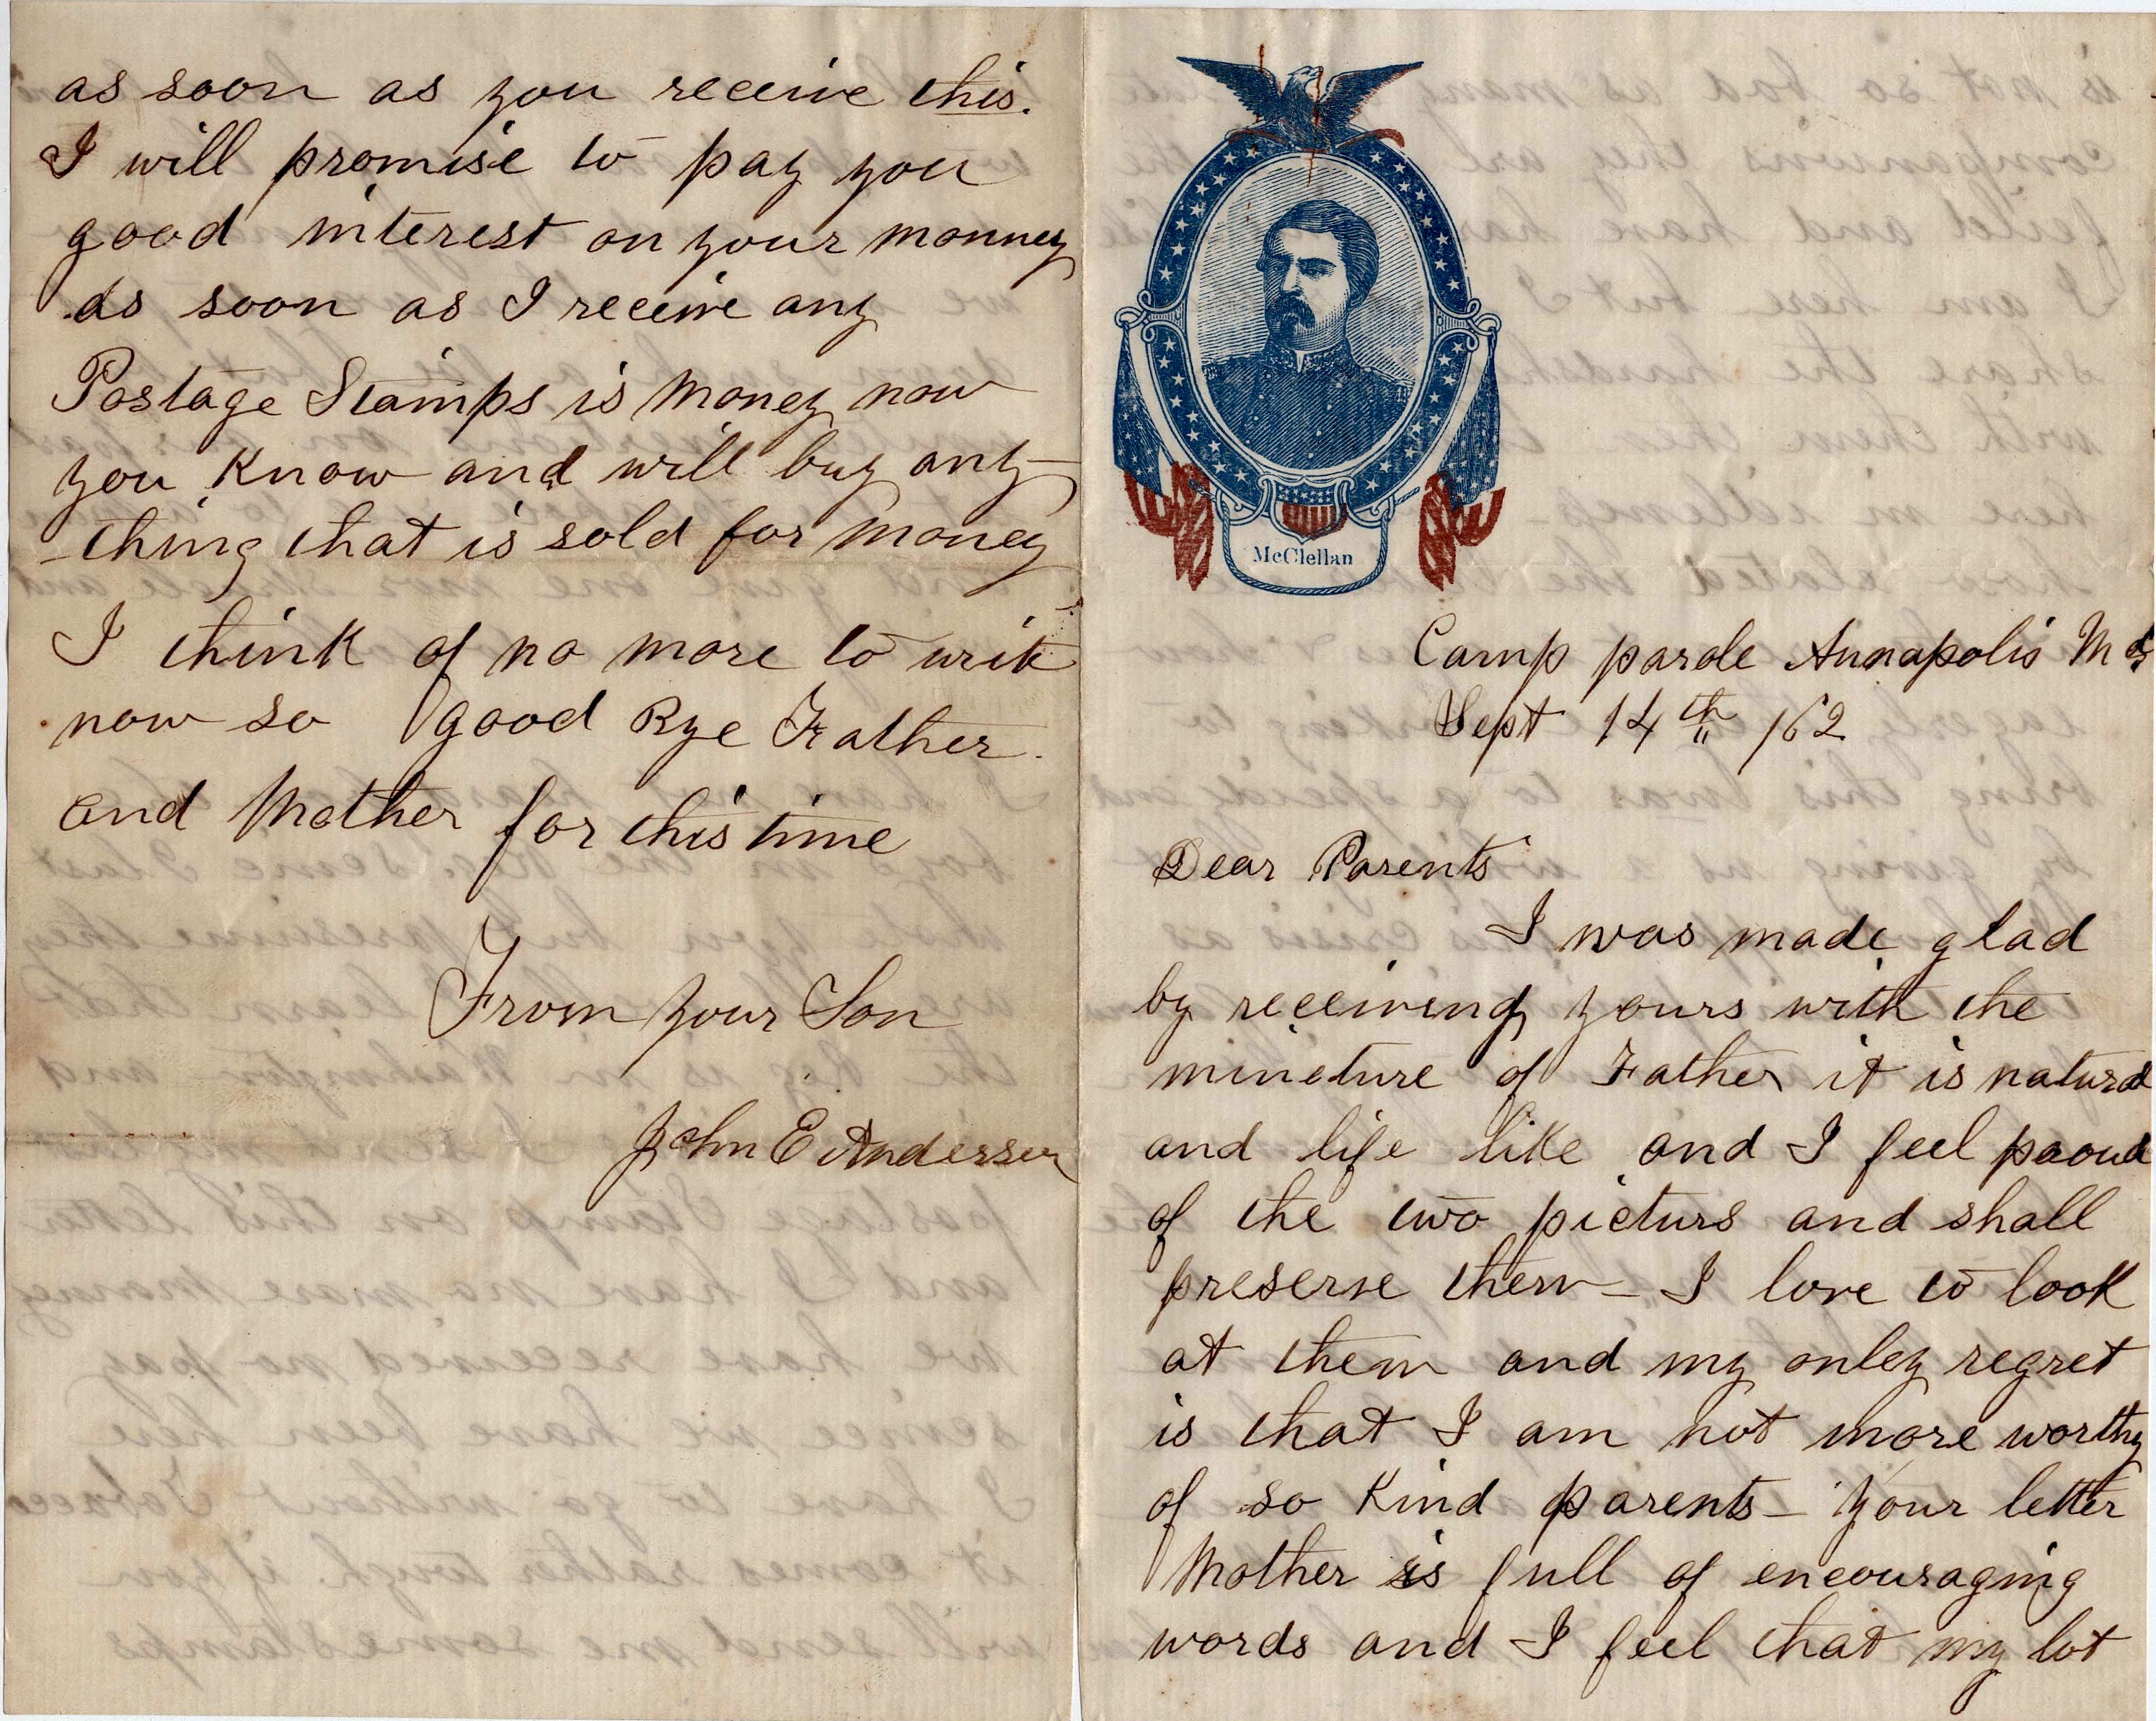 as soon as you receive this.
I will promise to pay you
good interest on your monney
as soon as I receive any
Postage Stamps is money now
you Know and will buy any-
-thing that is sold for money
I think of no more to write
now so good Bye Father.
and Mother for this time
From your Son
John E Anderson
McClellan
Camp parole Annapolis Md
Sept 14th /62
Dear Parents
I was made glad
by receiving yours with the
mineture of Father it is natural
and life like and I feel proud
of the two picturs and shall
preserve them - I love to look
at them and my onley regret
is that I am not more worthy
of so Kind parents - Your letter
Mother is full of encouraging
words and I feel that my lot